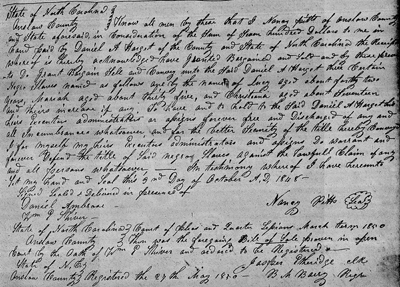 State of North Carolina }
Onslow County } Know all men by these that I Nancy Pitts of Onslow County
and State aforesaid, in Consideration of the Sum of Hundred Dollars to me in
hand paid by Daniel A Harget of the County and State of North Carolina the Receipt
whereof is hereby acknowledged have Granted Bargained and Sold and by these presents
do Grant Bargain Sell and Convey unto the Said Daniel A Harget Certain
Negro Slaves named as follows by the names of Lucy aged about forty two
years, Mariah aged about thirty five, and Christiana aged about Seventeen
To have and to hold to the Said Daniel A Harget his
heirs Executors administrators or assigns forever free and Discharged of any and
all Incumbrances whatsoever and for the better Security of the title hereby Conveyed
I for myself my heirs executors administrators and assigns Do warrant and
forever Defend the title of Said negroes Slaves against the Lawfull Claim of any
and all persons whatsoever In testimony whereof I have hereunto
Set my hand and Seal this 2nd Day of October A.D. 1848
Signed Sealed & Delivered in presence of
Daniel Ambrose Nancy Pitts Seal
Wm P Shiver
State of North Carolina Court of Pleas and Quarter Sessions March Term 1850
Onslow County } Then was the foregoing Bill of Sale proven in open
Court by the Oath of Wm P Shiver and ordered to be Registered
Jasper Etheridge clk
State of N. C.
Onslow County Registered the 27th May 1850 B M Barry Regr